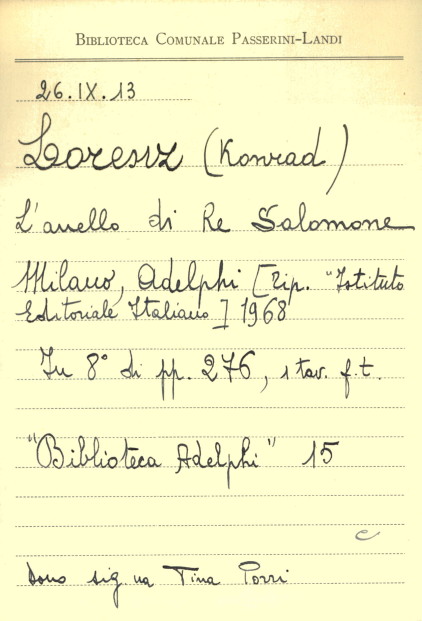 BIBLIOTECA COMUNALE PASSERINI-LANDI
26.IX.13
Lorenz (Konrad)
L'anello di Re Salomone
Milano, Adelphi [Tip. "Istituto
Editoriale Italiano] 1968
In 8° di pp. 276, 1 tav. f.t.
"Biblioteca Adelphi" 15
C
Dono sig.na Tina